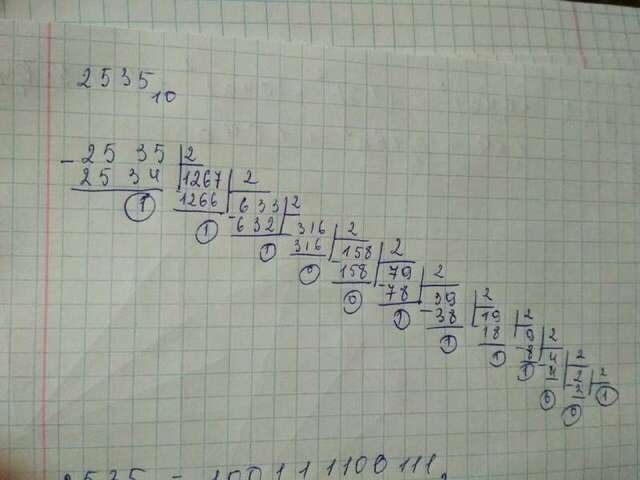 2535₁₀
- 2535 | 2
2534 | 1267 | 2
1 1266 - 633 | 2
1 - 632 316 | 2
1 316 - 158 | 2
0 158 - 79 | 2
0 78 - 39 | 2
1 38 19 | 2
1 18 9 | 2
1 - 8 - 4 | 2
1 4 - 2 | 2
0 2 1
0
2535 = 100111100111₂